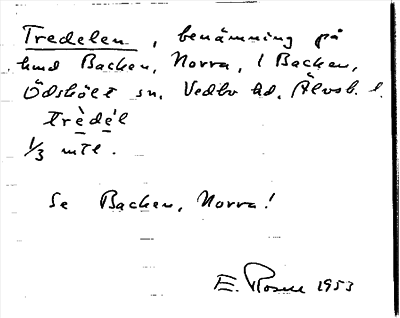 Tredelen, benämning på
hmd Backen, Norra, (Backen,
Ödskölt sn, Vedbo hd, Älvsb. l.
trèdél
1/3 mtl.
Se Backen, Norra!
E. Rosell 1953